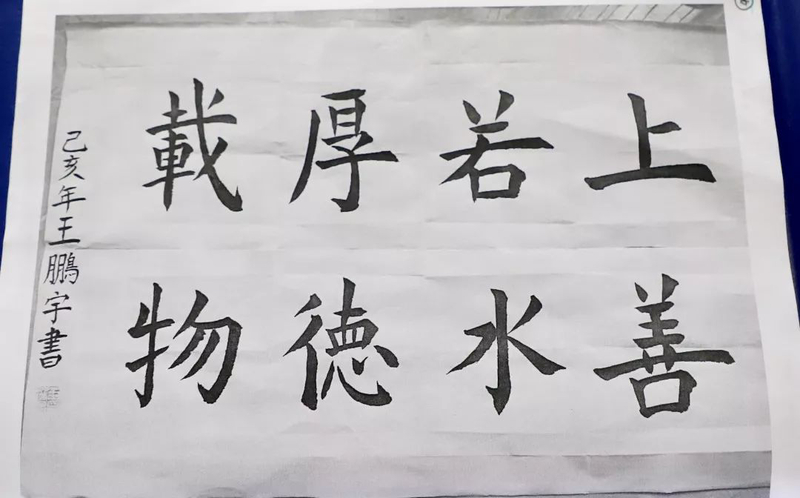 上善
若水
厚德
載物
己亥年王鵬宇書